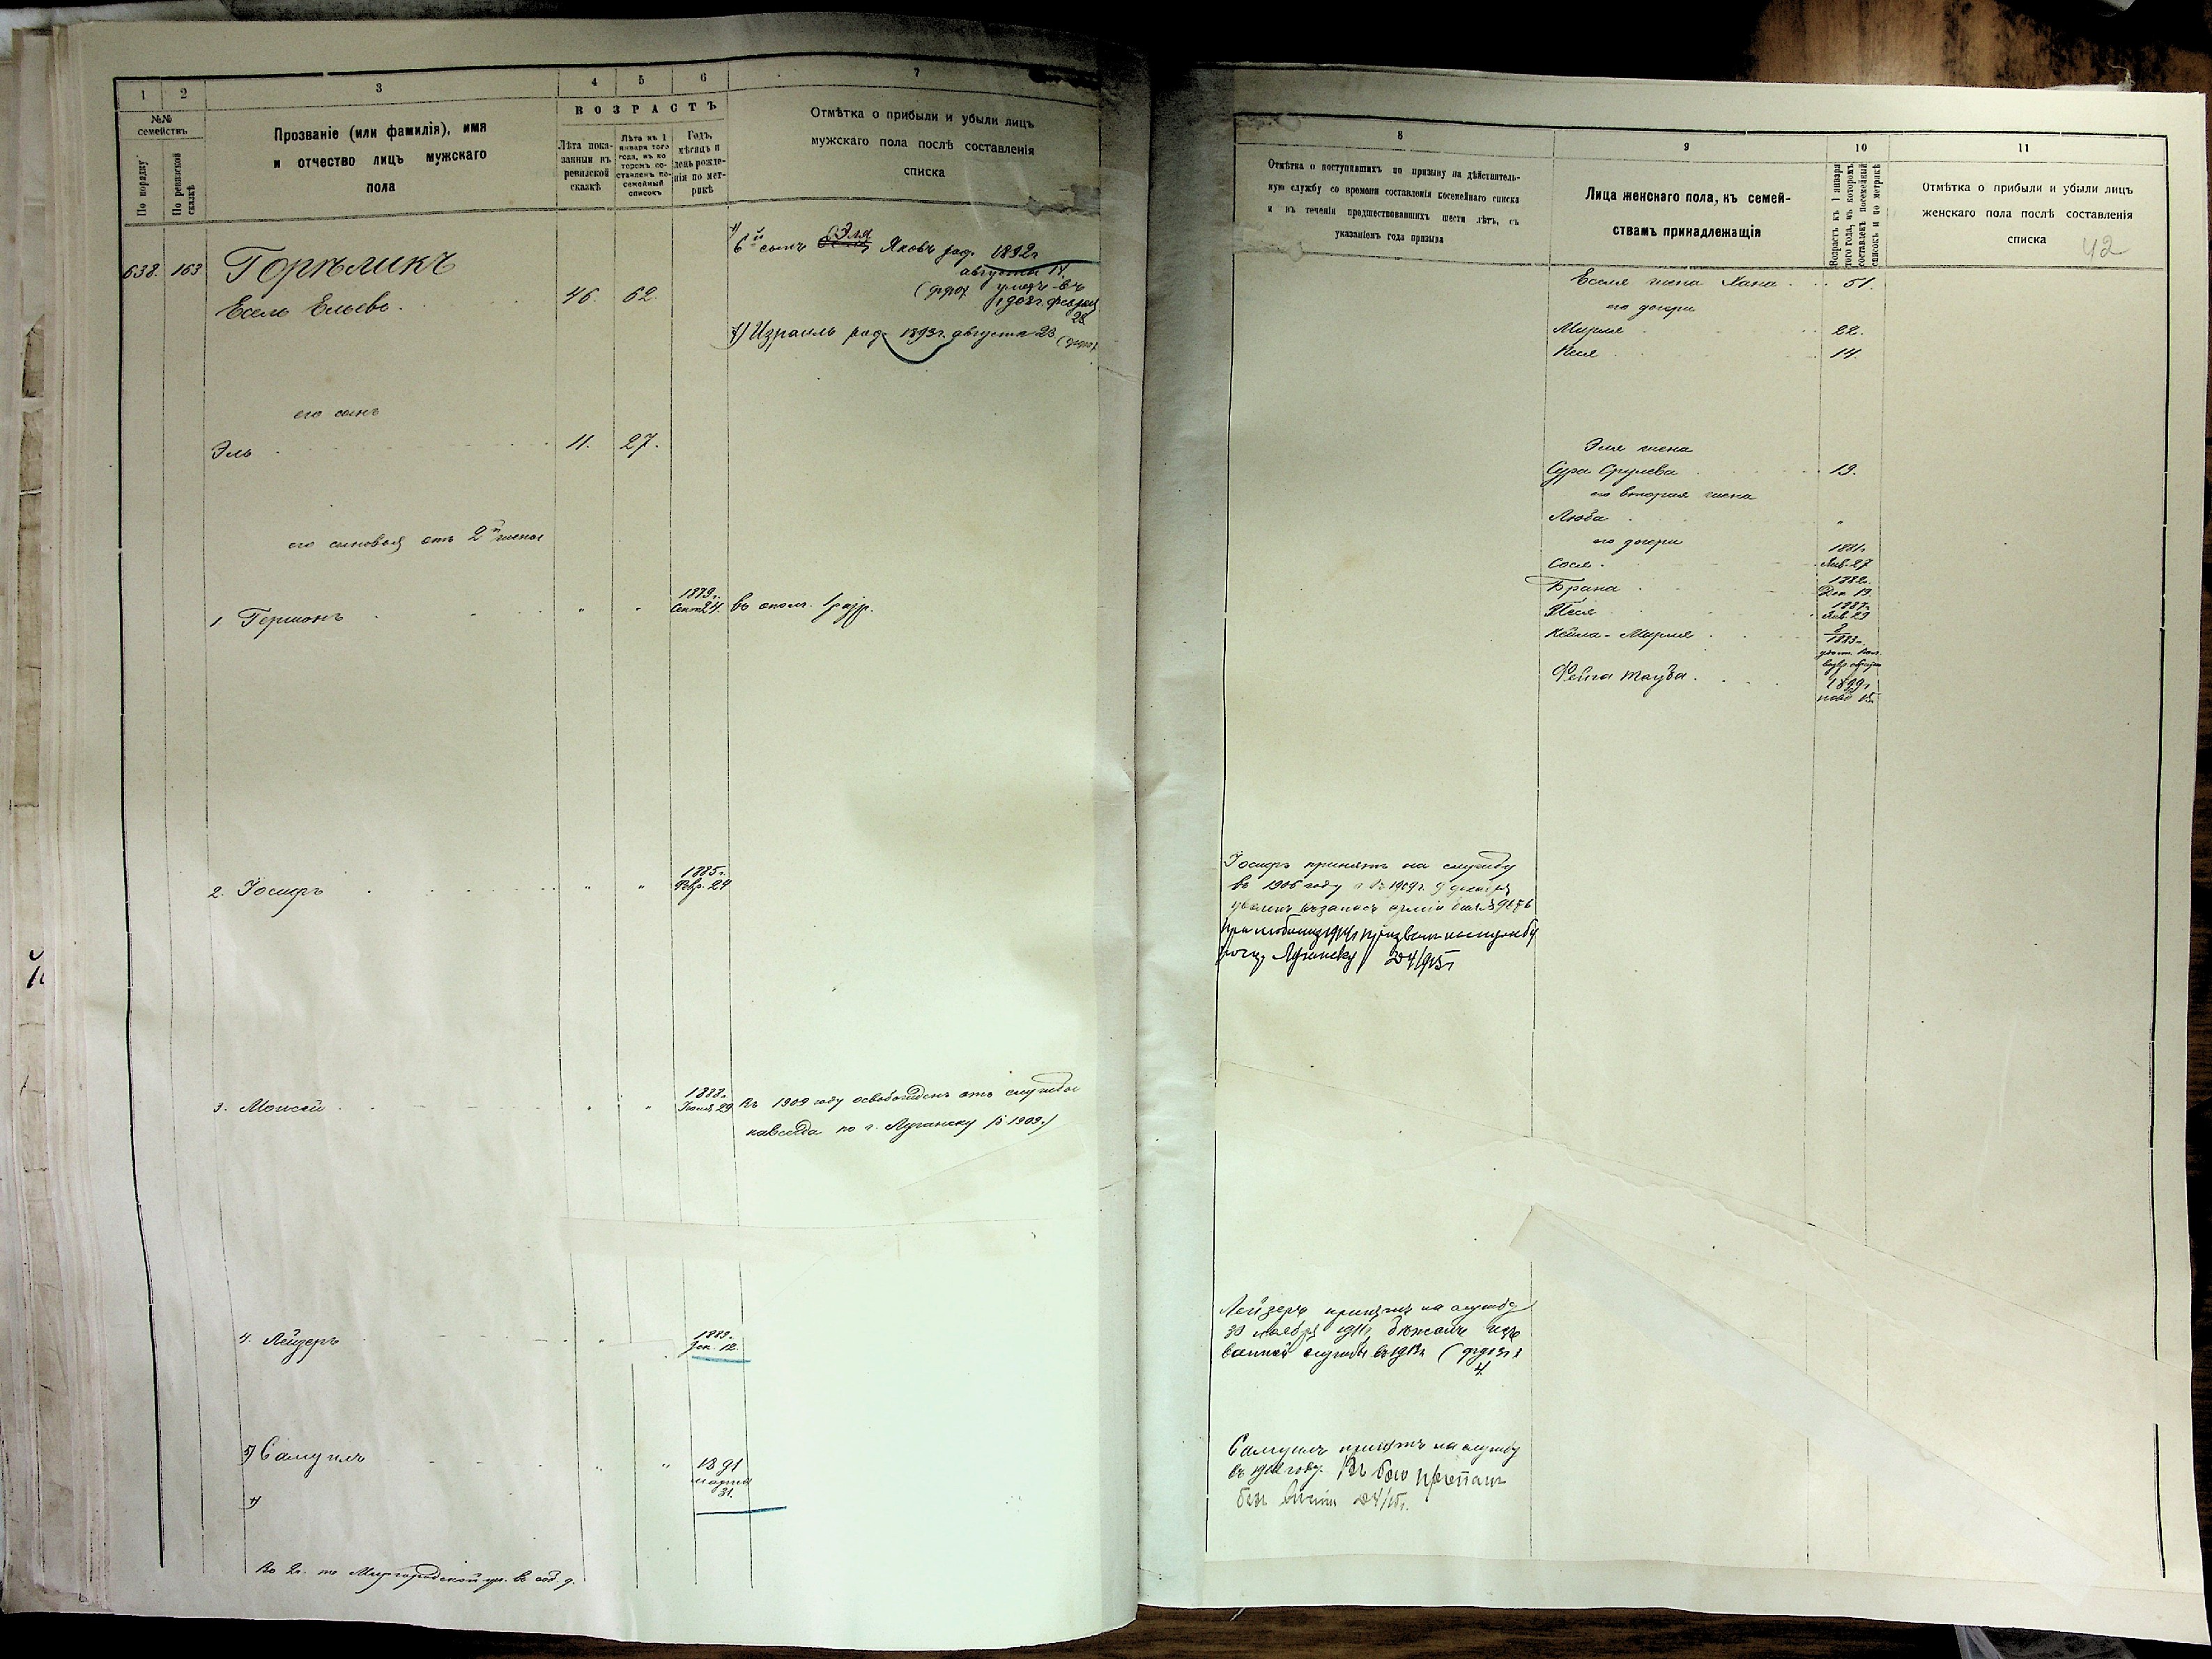 1 2 3 4 5 6 7
№№ семействъ
По порядку
По ревизской сказкѣ
Прозваніе (или фамилія), имя
и отчество лицъ мужскаго
пола
ВОЗРАСТЪ
Лѣта пока-
занныя въ
ревизской
сказкѣ
Лѣта къ 1
января того
года, въ ко
торомъ со-
ставленъ по-
семейный
списокъ
Годъ,
мѣсяцъ и
день рожде-
нія по мет-
рикѣ
Отмѣтка о прибыли и убыли лицъ
мужскаго пола послѣ составленія
списка
638. 163 Горѣликъ
Есель Ельевъ. 46. 62.
6й сынъ Эля Яковъ род. 1892г
августа 17.
умеръ въ
1903г. февраля
28
7) Израиль род. 1893г. августа 23
его сынъ
Эль 11. 27.
его сыновья отъ 2й жены
1. Гершонъ " " 1879г. Сент. 24. въ ополч. 1 разр.
2. Іосифъ " " 1885г. Февр. 24
3. Моисей " " 1888г. Іюля 29 Въ 1909 году освобожденъ отъ службы
навсегда по г. Луганску
4. Лейзеръ " " 1889г. Дек. 12.
5) Самуилъ " " 1891 марта 31.
Во 2ч. по Миргородской ул. въ соб. д.
8 9 10 11
Отмѣтка о поступившихъ по призыву на дѣйствитель-
ную службу со времени составленія посемейнаго списка
и въ теченіи предшествовавшихъ шести лѣтъ, съ
указаніемъ года призыва
Лица женскаго пола, къ семей-
ствамъ принадлежащія
Возрастъ къ 1 января
того года, въ которомъ
составленъ посемейный
списокъ и по метрикѣ
Отмѣтка о прибыли и убыли лицъ
женскаго пола послѣ составленія
списка
42
Еселя жена Хана 51.
его дочери
Мирля 22.
14.
Эля жена
Сура Срулева 19.
его вторая жена
Люба "
его дочери
Сося 1881г. Янв. 27
Брана 1882г. Дек. 19
1887г. Янв. 29
Кейла-Мирля 1883г.
Фейга Тауба. 1899г. нояб 15.
Іосифъ принятъ на службу
въ 1906 году и въ 1909г. 9 декабря
уволенъ въ запасъ арміи
призванъ на службу
Луганску 1915г
Лейзеръ принятъ на службу
30 ноября 1911г, бѣжалъ изъ
военной службы въ 1913г
4
Самуилъ принятъ на службу
въ 1912 году. Въ бою пропалъ
безъ вѣсти